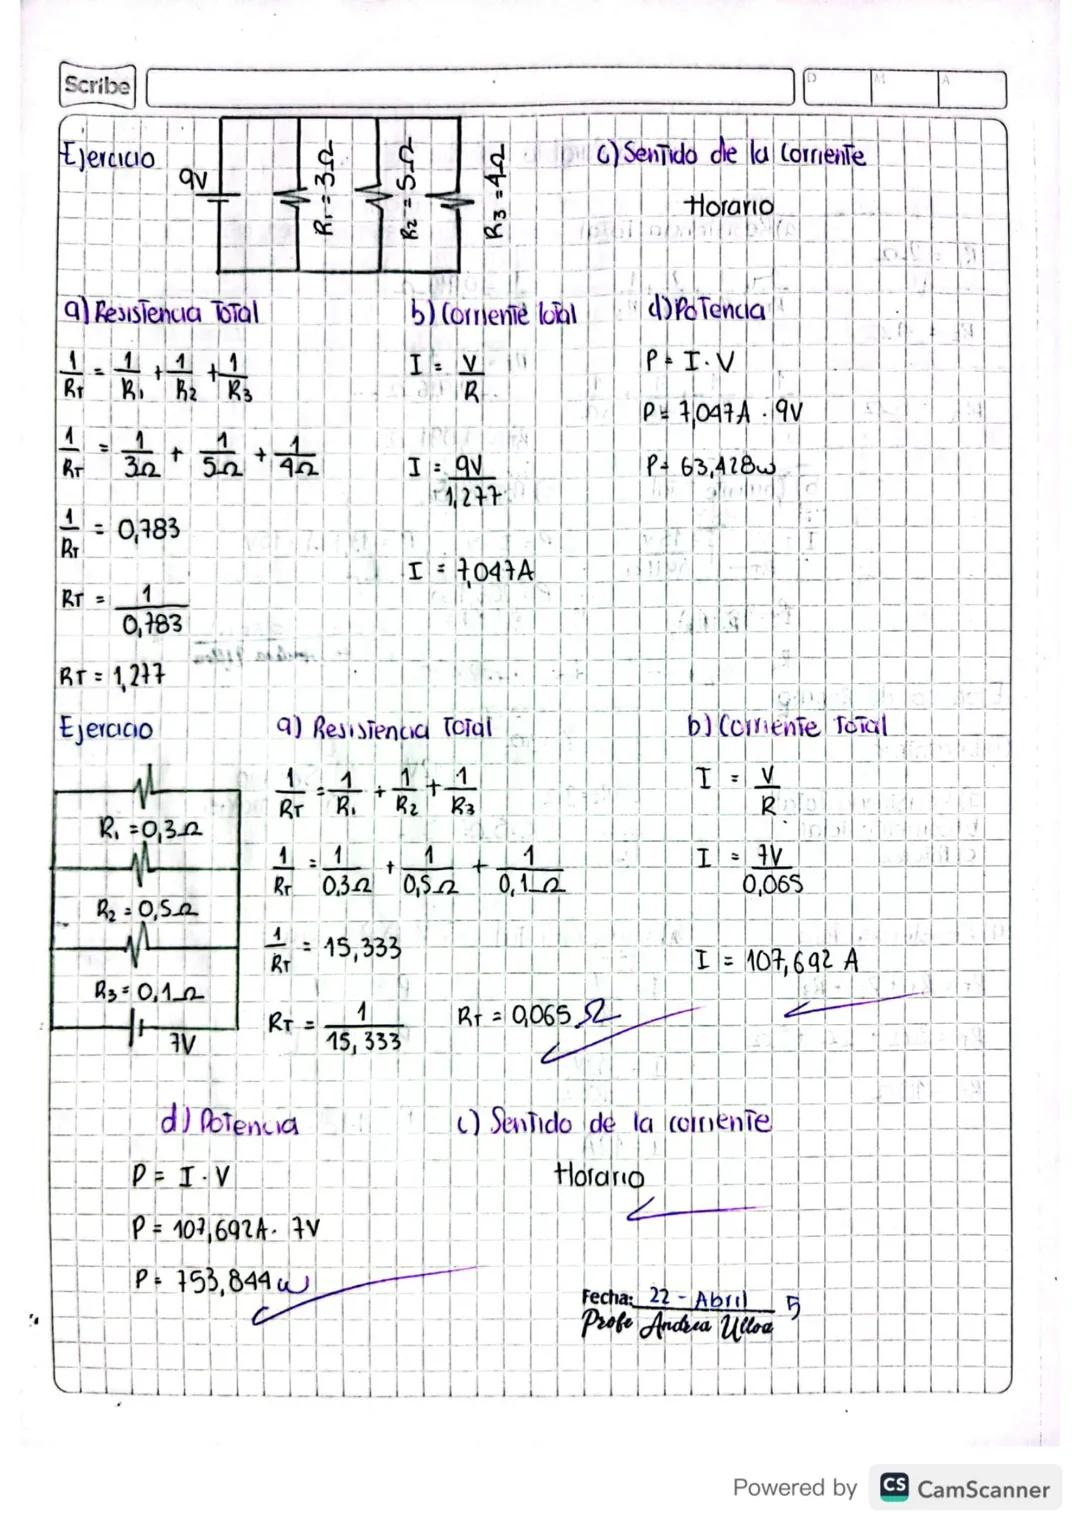 Scribe
D M A
Ejercicio
9V
R₁ = 3Ω
R₂ = 5Ω
R₃ = 4Ω
c) Sentido de la Corriente
Horario
a) Resistencia Total
1/RT = 1/R₁ + 1/R₂ + 1/R₃
1/RT = 1/3Ω + 1/5Ω + 1/4Ω
1/RT = 0,783
RT = 1/0,783
RT = 1,277
b) Corriente total
I = V/R
I = 9V/1,277
I = 7,047A
d) Potencia
P = I · V
P = 7,047A · 9V
P = 63,428w
Ejercicio
R₁ = 0,3Ω
R₂ = 0,5Ω
R₃ = 0,1Ω
7V
a) Resistencia Total
1/RT = 1/R₁ + 1/R₂ + 1/R₃
1/RT = 1/0,3Ω + 1/0,5Ω + 1/0,1Ω
1/RT = 15,333
RT = 1/15,333
RT = 0,065 Ω
b) Corriente Total
I = V/R
I = 7V/0,065
I = 107,692 A
d) Potencia
P = I · V
P = 107,692A · 7V
P = 753,844 w
c) Sentido de la corriente
Horario
Fecha: 22 - Abril 5
Profe Andrea Ulloa
Powered by CS CamScanner